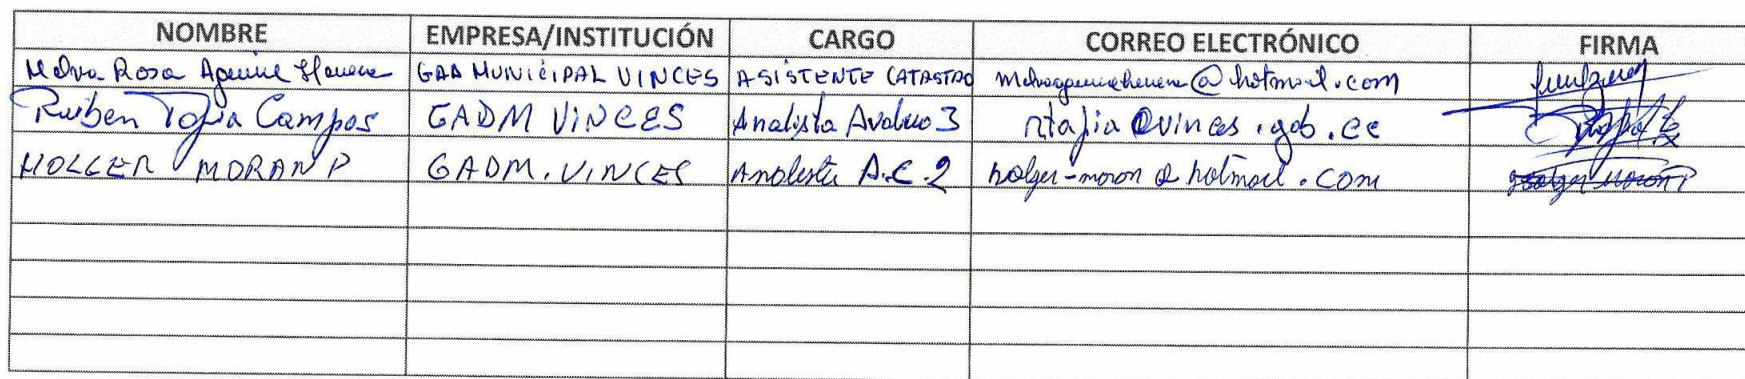 NOMBRE EMPRESA/INSTITUCIÓN CARGO CORREO ELECTRÓNICO FIRMA
Melva Rosa Aguirre GAD MUNICIPAL VINCES ASISTENTE CATASTRO @hotmail.com
Ruben Tapia Campos GADM VINCES Analista Avaluo 3 rtapia@vinces.gob.ec
HOLGER MORAN P GADM. VINCES Analista A.C.2 holger-moran@hotmail.com